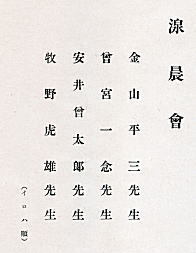 湶晨會
金山平三先生
曾宮一念先生
安井曾太郎先生
牧野虎雄先生
(イロハ順)